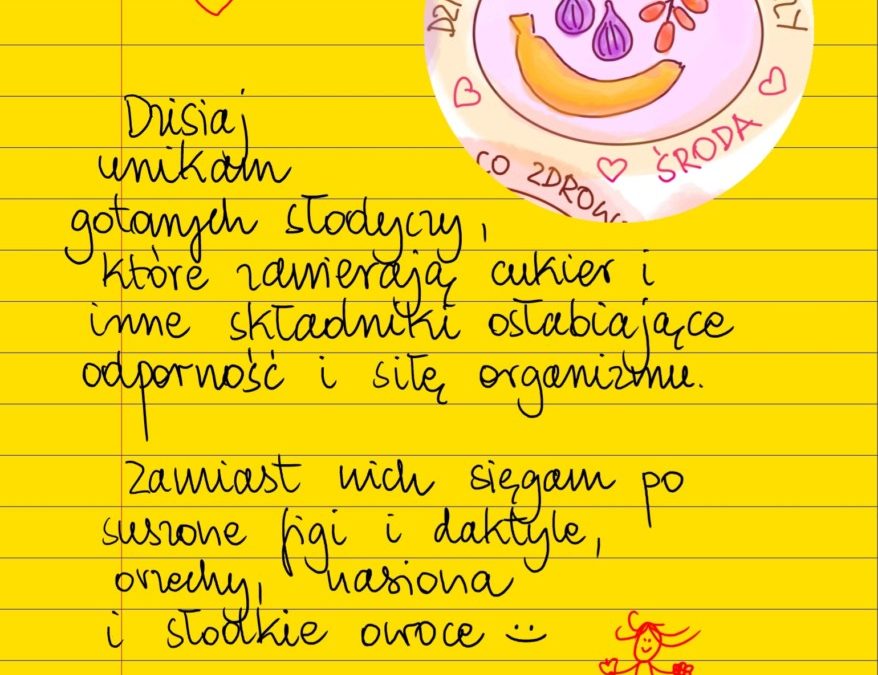 ŚRODA
CO ZDROW
Dzisiaj
unikam
gotanych słodyczy,
które zawierają cukier i
inne składniki osłabiające
odporność i siłę organizmu.
Zamiast nich sięgam po
suszone figi i daktyle,
orzechy, nasiona
i słodkie owoce :)